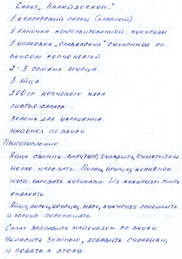 Салат "Калейдоскоп."
1 болгарский перец (красный)
1 баночка консервированной кукурузы
1 упаковка сухариков со
вкусом копчёностей
2-3 свежих огурца
3 яйца
200гр копчёного мяса
листья салата
зелень для украшения
майонез по вкусу
Приготовление:
Яйца сварить вкрутую, охладить, очистить и
мелко нарезать. Перец, огурцы, копчёное
мясо нарезать кубиками. Из кукурузы слить
жидкость.
Яйца, перец, огурец, мясо, кукурузу соединить
и хорошо перемешать.
Салат заправить майонезом по вкусу
Украсить зеленью, добавить сухарики,
и подать к столу.